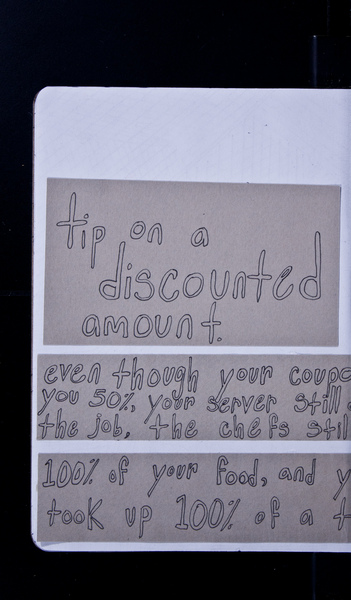 tip on a
discounted
amount.
even though your
you 50%, your server still
the job, the chefs
100% of your food, and
took up 100% of a